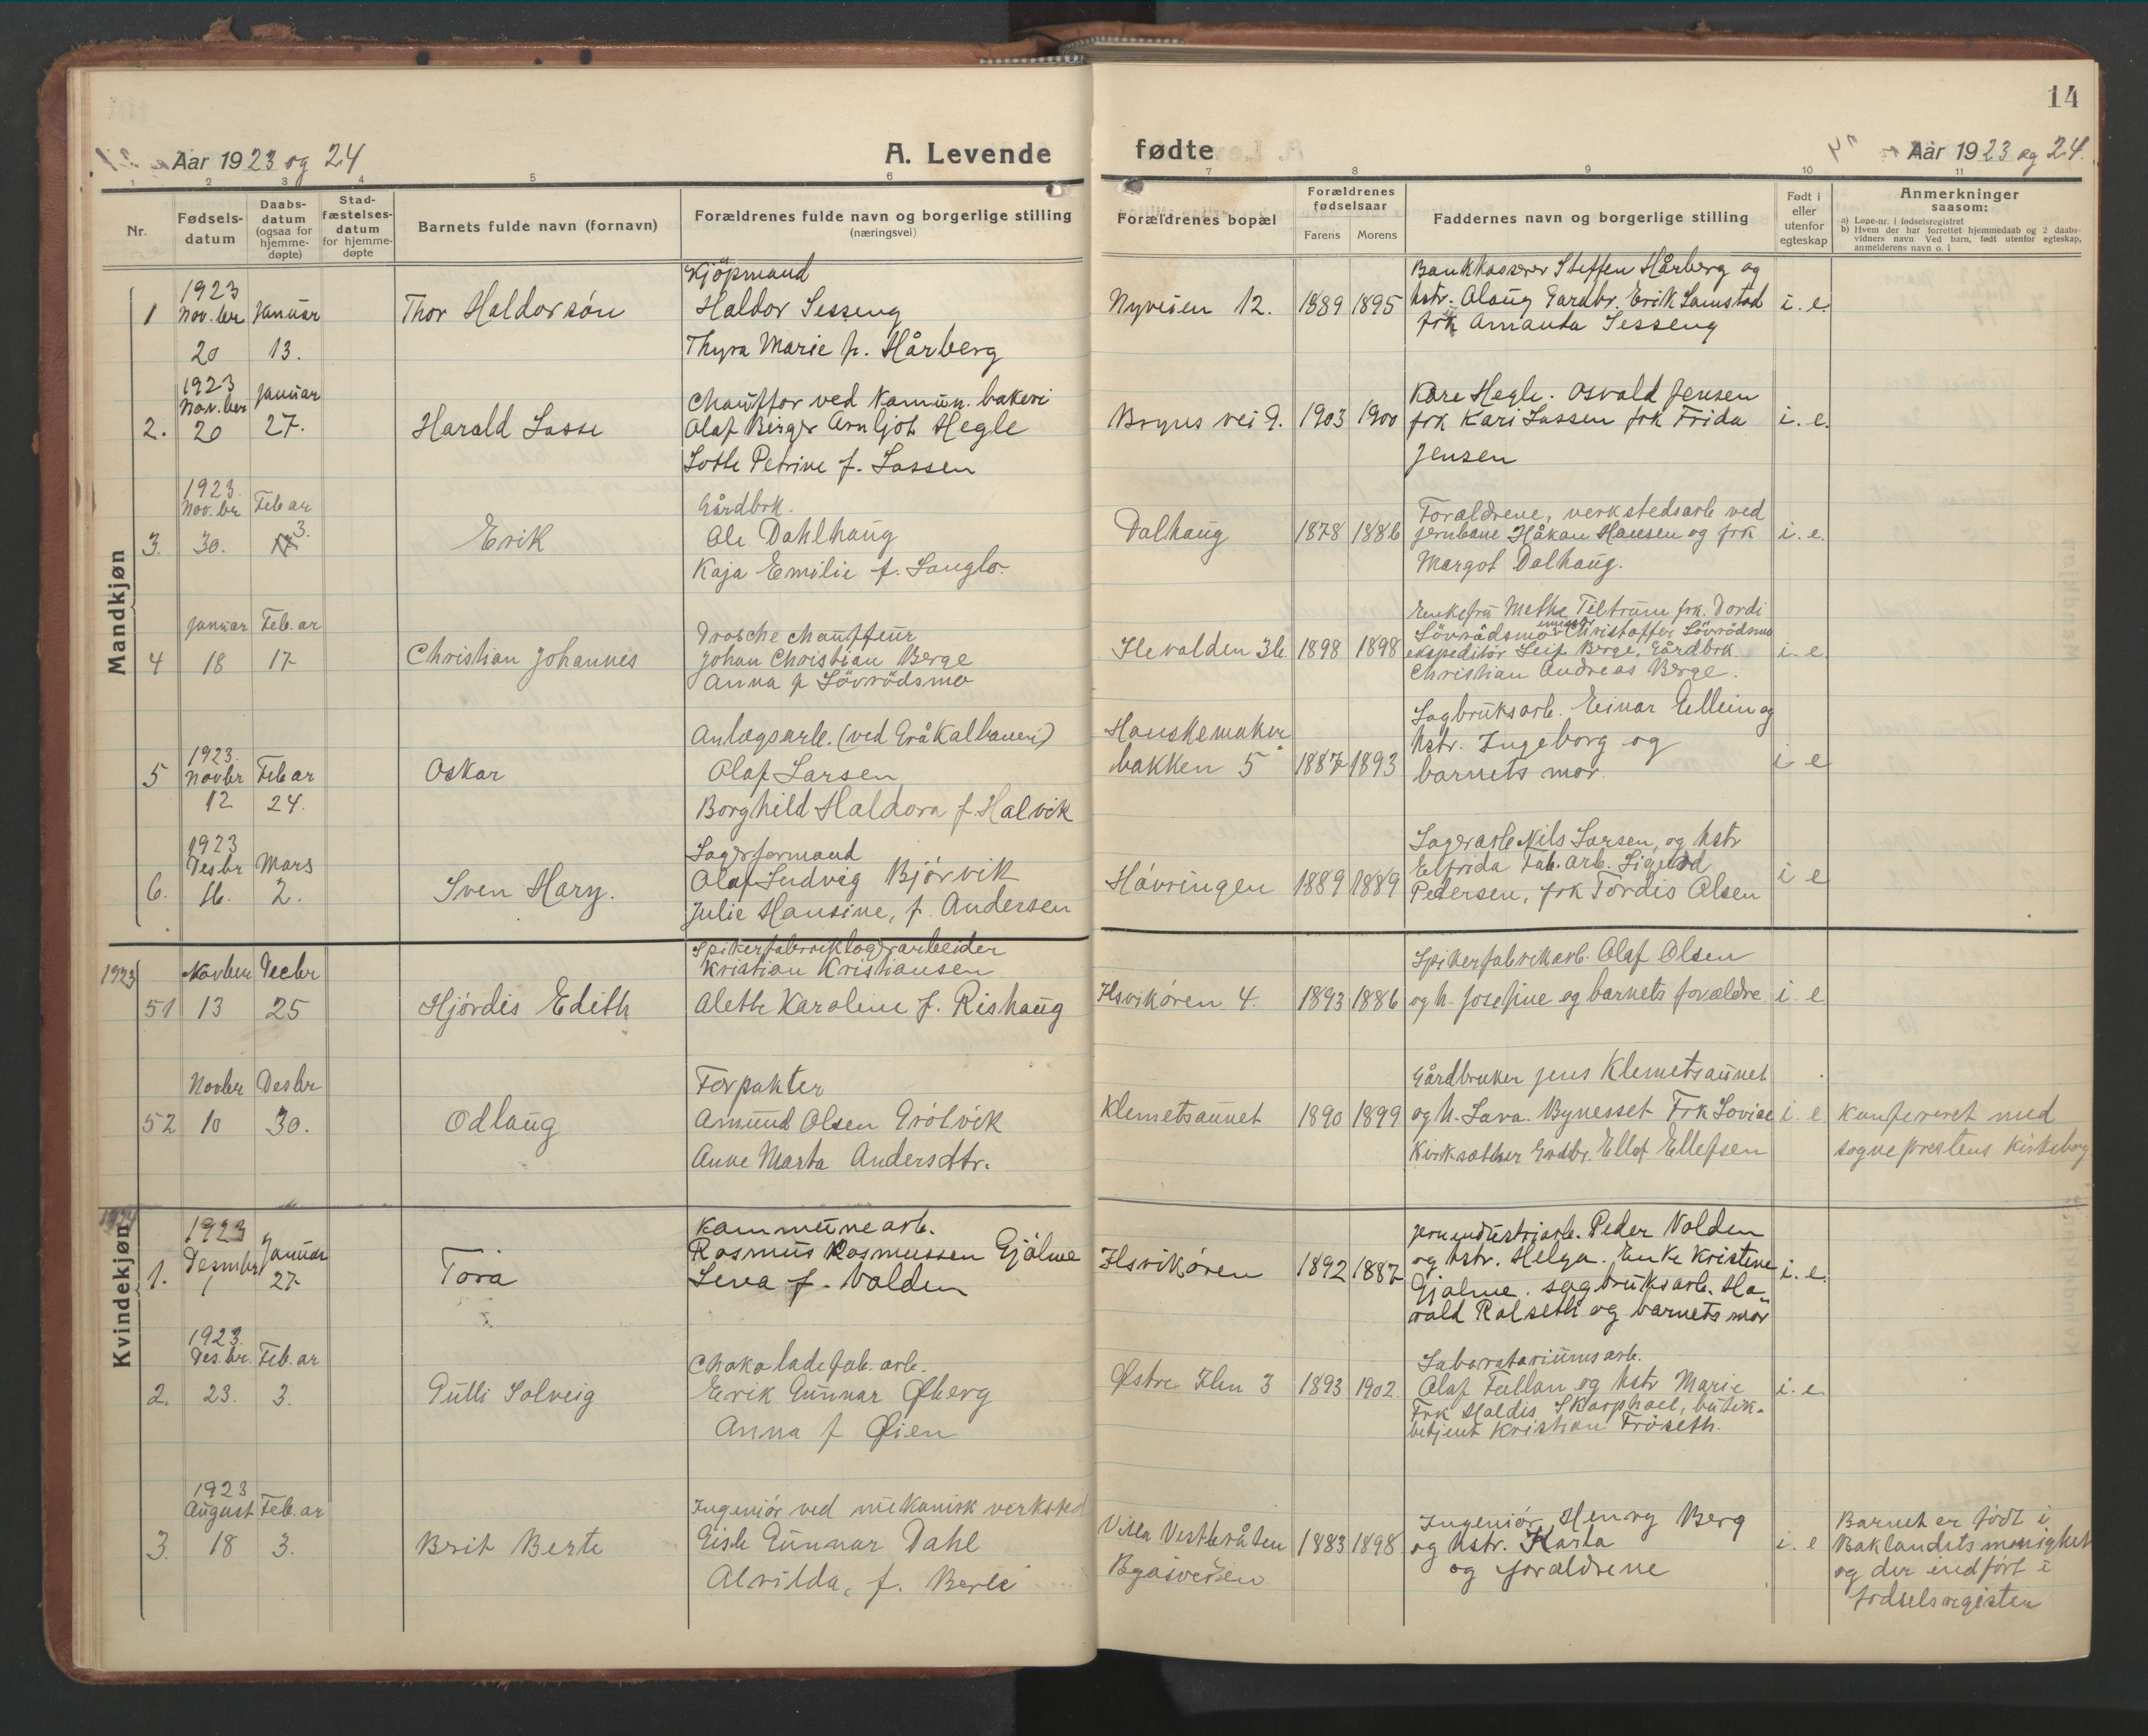 14
Aar 1923 og 24
A. Levende fødte
Aar 1923 og 24.
1 2 3 4 5 6 7 8 9 10 11
Nr.
Fødsels-datum
Daabs-datum (ogsaa for hjemme-døpte)
Stad-fæstelses-datum for hjemme-døpte
Barnets fulde navn (fornavn)
Forældrenes fulde navn og borgerlige stilling
(næringsvei)
Forældrenes bopæl
Forældrenes fødselsaar
Farens Morens
Faddernes navn og borgerlige stilling
Født i eller utenfor egteskap
Anmerkninger
saasom:
a) Løpe-nr. i fødselsregistret
b) Hvem der har forrettet hjemmedaab og 2 daabs-
vidners navn. Ved barn, født utenfor egteskap,
anmelderens navn o. l
Mandkjøn
1
1923 Nov.ber 20
Januar 13.
Thor Haldorsøn
Kjöpmand
Haldor Sesseng
Thyra Marie f. Hårberg
Nyveien 12.
1889 1895
Bankkasserer Steffen Hårberg og
hstr. Olaug Gardbr. Erik Lamstad
frk Amanda Sesseng
i. e.
2.
1923 Nov.ber 20
Januar 27.
Harald Lasse
Chauffør ved Komun. bakeri
Olaf Berger Arnljot Hegle
Lotte Petrine f. Lassen
Bryns vei 9.
1903 1900
Kåre Hegle. Osvald Jensen
frk Kari Lassen frk Frida
Jensen
i. e.
3.
1923 Nov.br 30.
Feb ar 3.
Erik
Gårdbrk.
Ole Dahlhaug
Kaja Emilie f. Langlo.
Dalhaug
1878 1886
Forældrene, verkstedsarb ved
jernbane Håkan Hansen og frk
Margot Dalhaug.
i. e.
4
Januar 18
Feb. ar 17
Christian Johannes
Drosche chauffeur
Johan Christian Berge
Anna f Lövrödsmo
Ilevolden 36
1898 1898
Enkefru Methe Tiltrum frk. Dordi
Lövrödsmo Christoffer Lövrödsmo
ekspeditör Leif Berge, Gårdbrk.
Christian Andreas Berge.
i. e.
5
1923. Novbr 12
Feb ar 24.
Oskar
Anlægsarb. (ved Gråkalbanen)
Olaf Larsen
Borghild Haldora f. Halvik
Hanskemaker
bakken 5
1887 1893
Sagbruksarb. Einar Ellein og
hstr. Ingeborg og
barnets mor.
i e
6.
1923 Desbr 16.
Mars 2.
Sven Hary.
Lagerformand
Olaf Ludvig Bjørvik
Julie Hansine, f. Andersen
Høvringen
1889 1889
Lagerarb Nils Larsen, og hstr
Elfrida Fab. arb. Sigurd
Pedersen, frk Tordis Olsen
i e
1923
51
Novber 13
Decbr 25
Hjördis Edith
Spikerfabrikklagerarbeider
Kristian Kristiansen
Aleth Karoline f. Rishaug
Ilsvikøren 4.
1893 1886
Spikerfabrikarb. Olaf Olsen
og h. Josefine og barnets forældre
i. e
52
Novbr 10
Desbr 30.
Odlaug
Forpakter
Amund Olsen Grötvik
Anne Marta Andersdtr.
Klemetsaunet
1890 1899
Gårdbruker Jens Klemetsaunet
og h. Lava. Bynesset Frk Lovise
Kirksæther Grdbr. Ellef Ellefsen
i. e.
Konfereret med
sogneprestens kirkebog
1924
Kvindekjøn
1.
1923 Desmbr 1
Januar 27
Tora
Kommunearb.
Rasmus Rasmussen Gjölme
Lena f. Volden
Ilsvikøren
1892 1887
Jernindustriarb. Peder Volden
og hstr. Helga. Enke Kristine
Gjølme. sagbruksarb. Ha-
rald Rolseth og barnets mor
i. e.
2.
1923. Des.br. 23.
Feb. ar 3.
Gulli Solveig
Chokoladefab. arb.
Erik Gunnar Øberg
Anna f Øien
Østre Ilen 3
1893 1902
Laboratoriumsarb.
Olaf Fullan og hstr Marie
Frk Haldis Skarphael, butik-
betjent Kristian Fröseth.
i. e.
3.
1923 August 18
Feb. ar 3.
Brit Berte
Ingeniør ved mekanisk verksted
Eisle Gunnar Dahl
Alvilda, f. Berle
Villa Vestlevåten
1883 1898
Ingeniør Henry Berg
og hstr. Karla
og forældrene
i. e
Barnet er født i
Baklandets menighet
og der indført i
fødselsregisteren